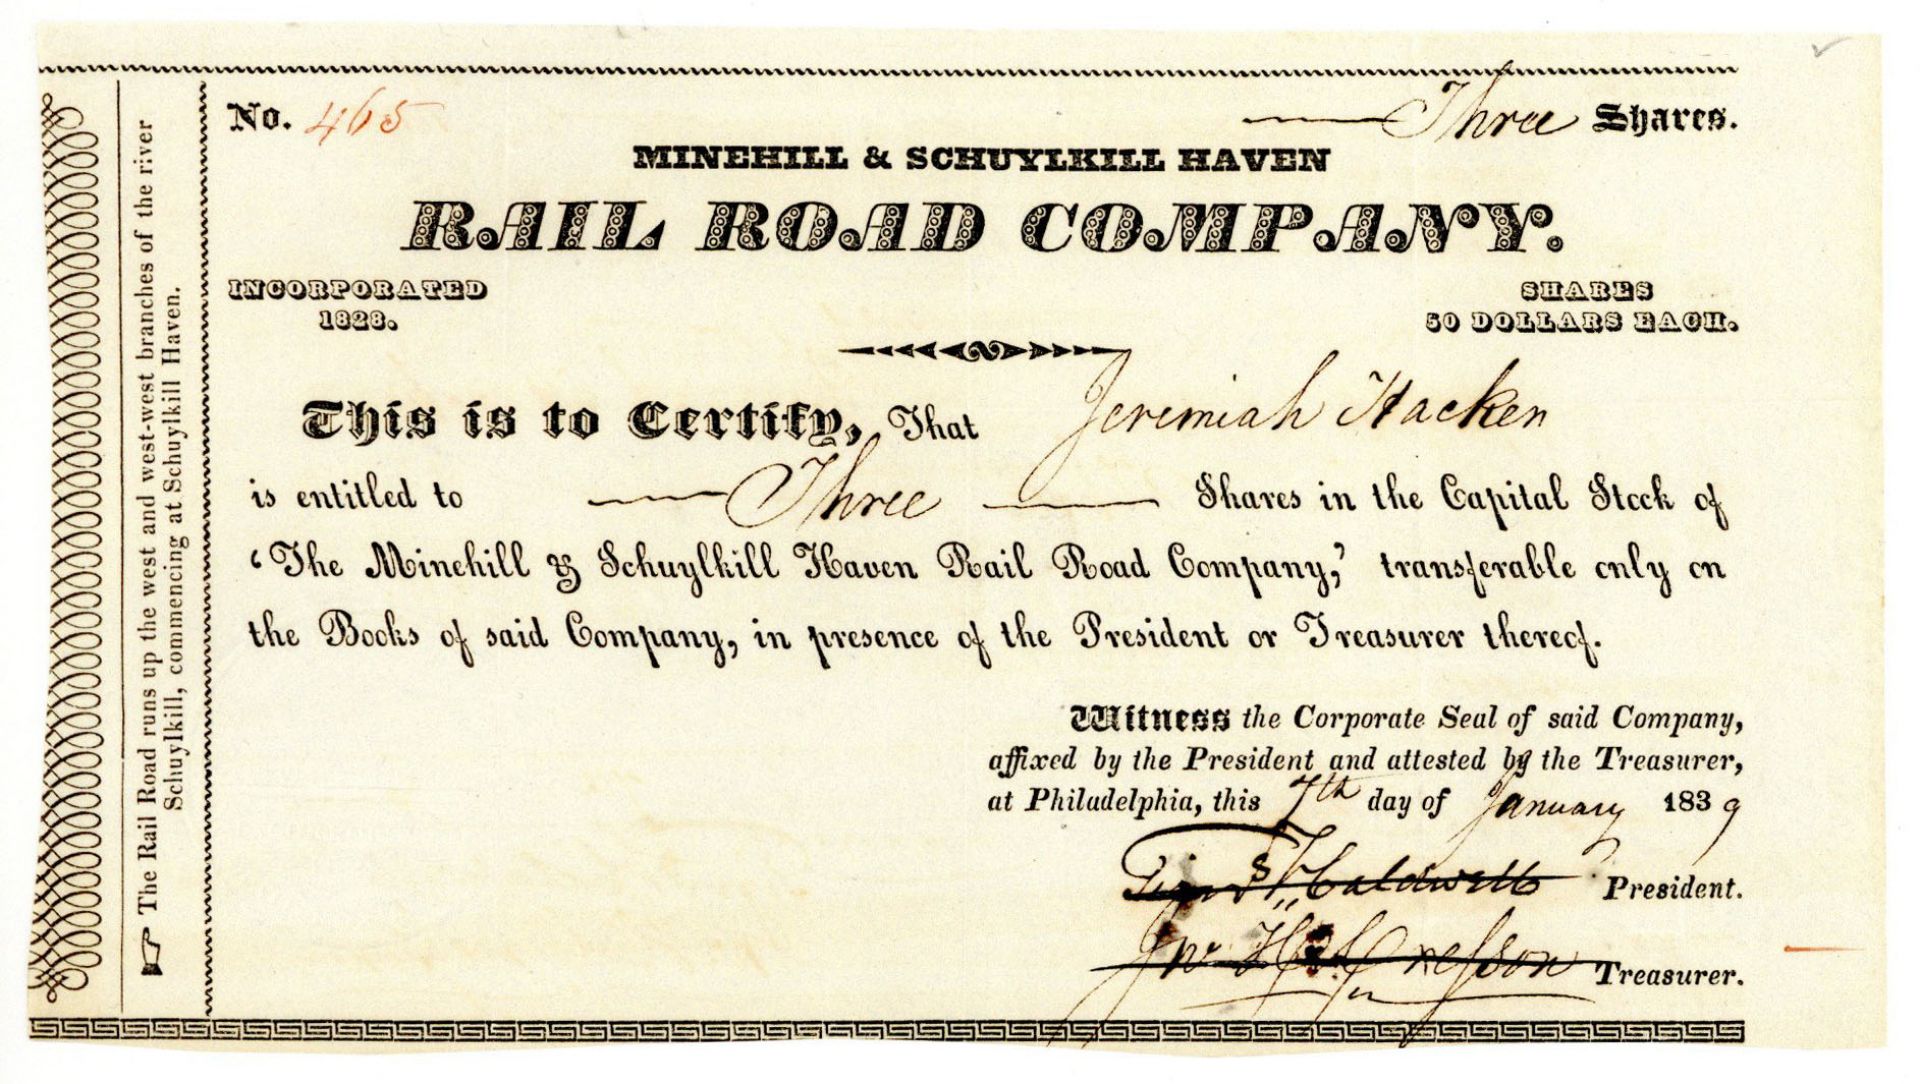 No. 465
Three Shares.
MINEHILL & SCHUYLKILL HAVEN
RAIL ROAD COMPANY.
INCORPORATED
1828.
SHARES
50 DOLLARS EACH.
This is to Certify, That Jeremiah Hacken
is entitled to Three Shares in the Capital Stock of
‘The Minehill & Schuylkill Haven Rail Road Company,’ transferable only on
the Books of said Company, in presence of the President or Treasurer thereof.
Witness the Corporate Seal of said Company,
affixed by the President and attested by the Treasurer,
at Philadelphia, this 7th day of January 1839
Caldwell President.
Cresson Treasurer.
The Rail Road runs up the west and west-west branches of the river
Schuylkill, commencing at Schuylkill Haven.